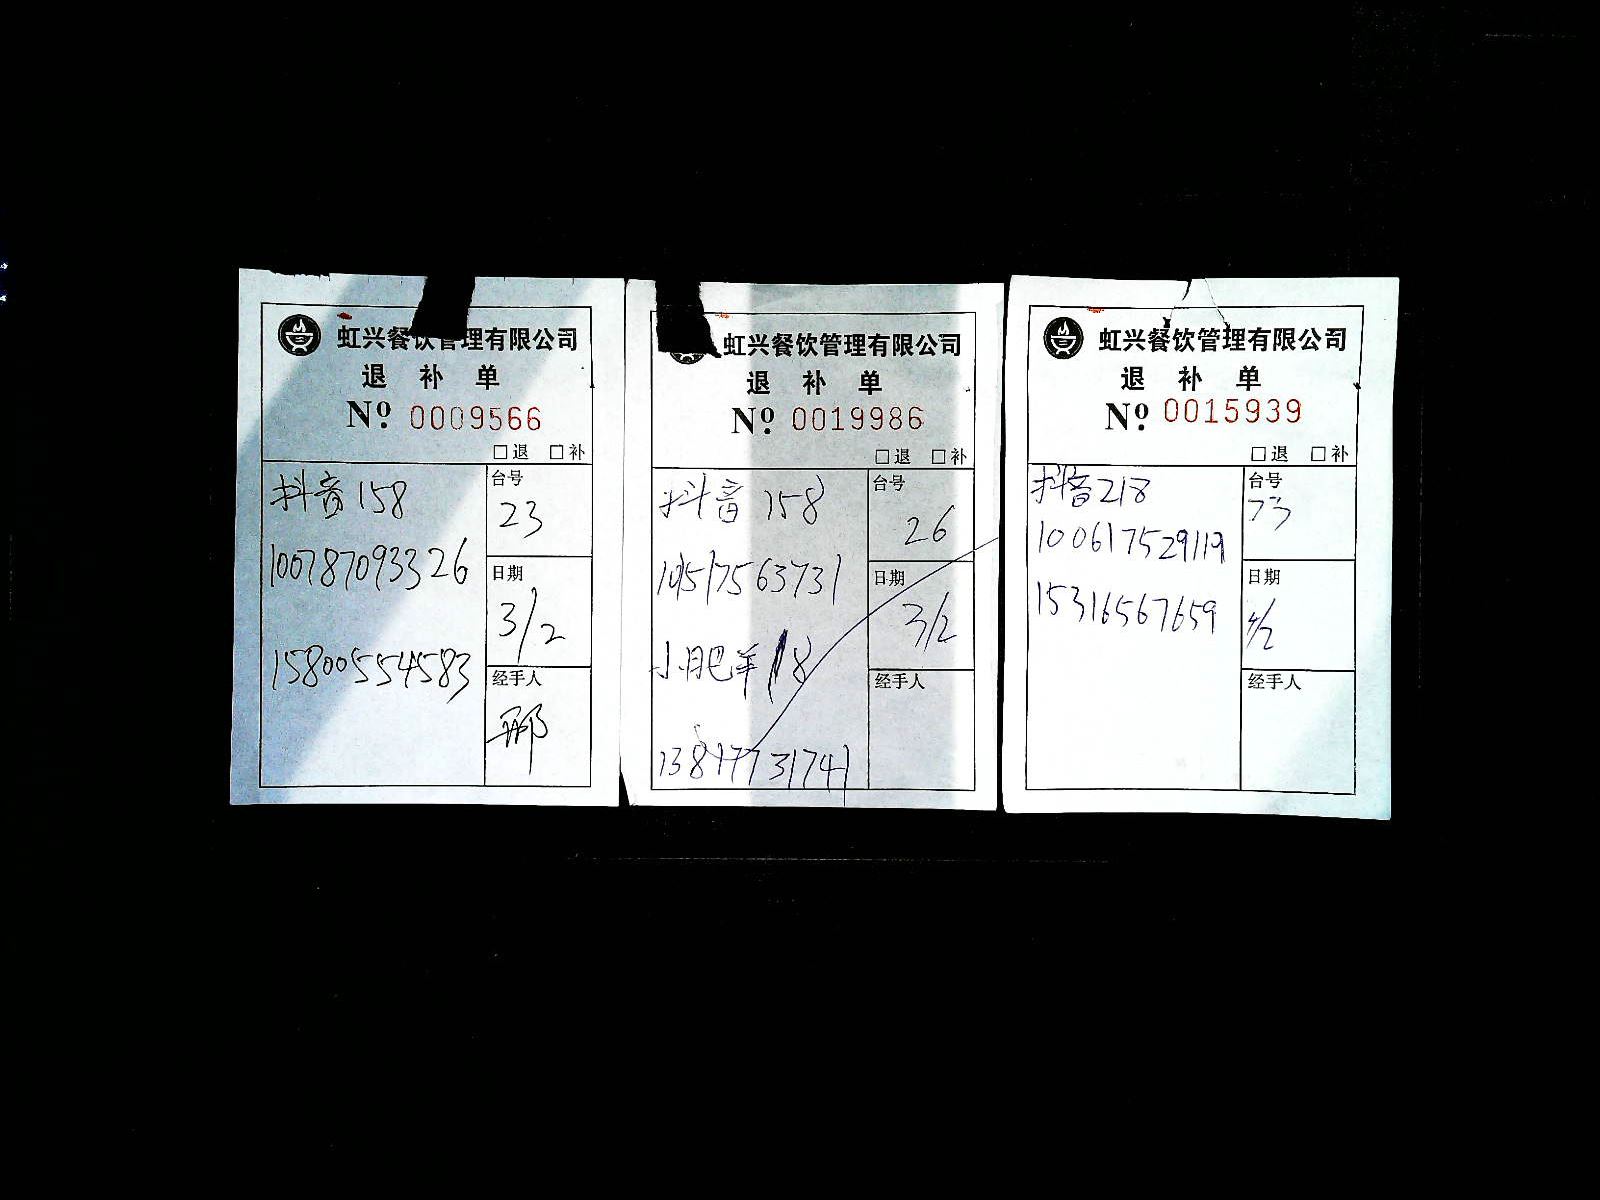 虹兴餐饮管理有限公司
退 补 单
Nº 0009566
□退 □补
抖音158
台号
23
100787093326
日期
3/2
15800554583
经手人
邢
虹兴餐饮管理有限公司
退 补 单
Nº 0019986
□退 □补
抖音 158
台号
26
日期
3/2
小肥羊 18
13817731741
经手人
虹兴餐饮管理有限公司
退 补 单
Nº 0015939
□退 □补
抖音218
台号
73
100617529119
日期
15316567659
经手人